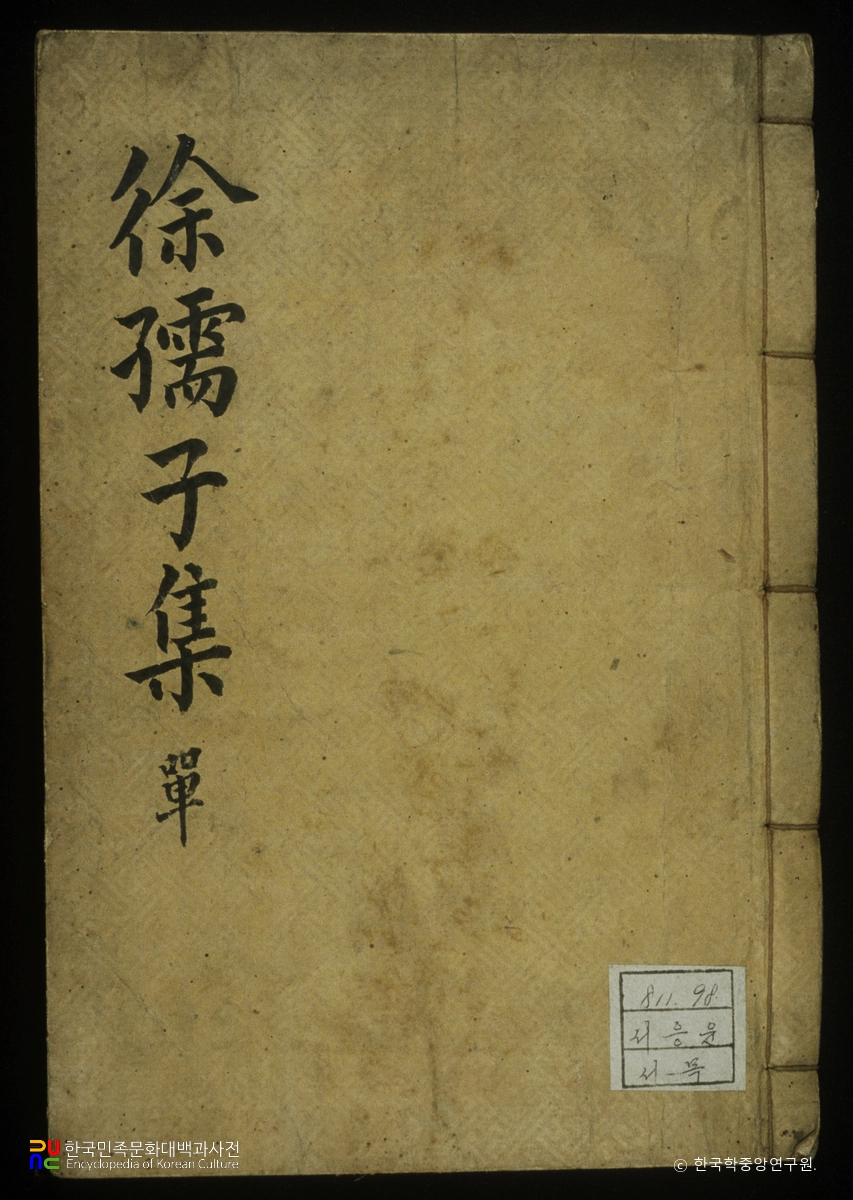 徐孺子集 單
811.98
서응윤
한국민족문화대백과사전
Encyclopedia of Korean Culture
© 한국학중앙연구원.